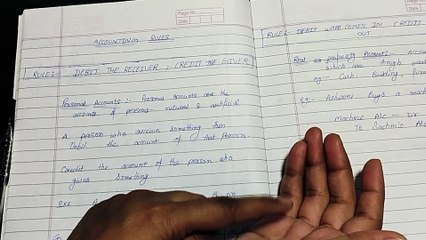 Page No.
Date
ACCOUNTING RULES
RULE:- DEBIT THE RECEIVER, CREDIT THE GIVER
Personal Accounts: Personal accounts are the
accounts of persons - natural & artificial
A person who receives something then
Debit the amount of that person
Credit the amount of the person who
gives something
RULE: DEBIT WHAT COMES IN CREDIT
OUT
Real or property Accounts: Accounts
which are
eg:- Cash, Building, furni
Eg:- Ashwani Bought a mach
Machine A/c - Dr
To Sachin's A/c